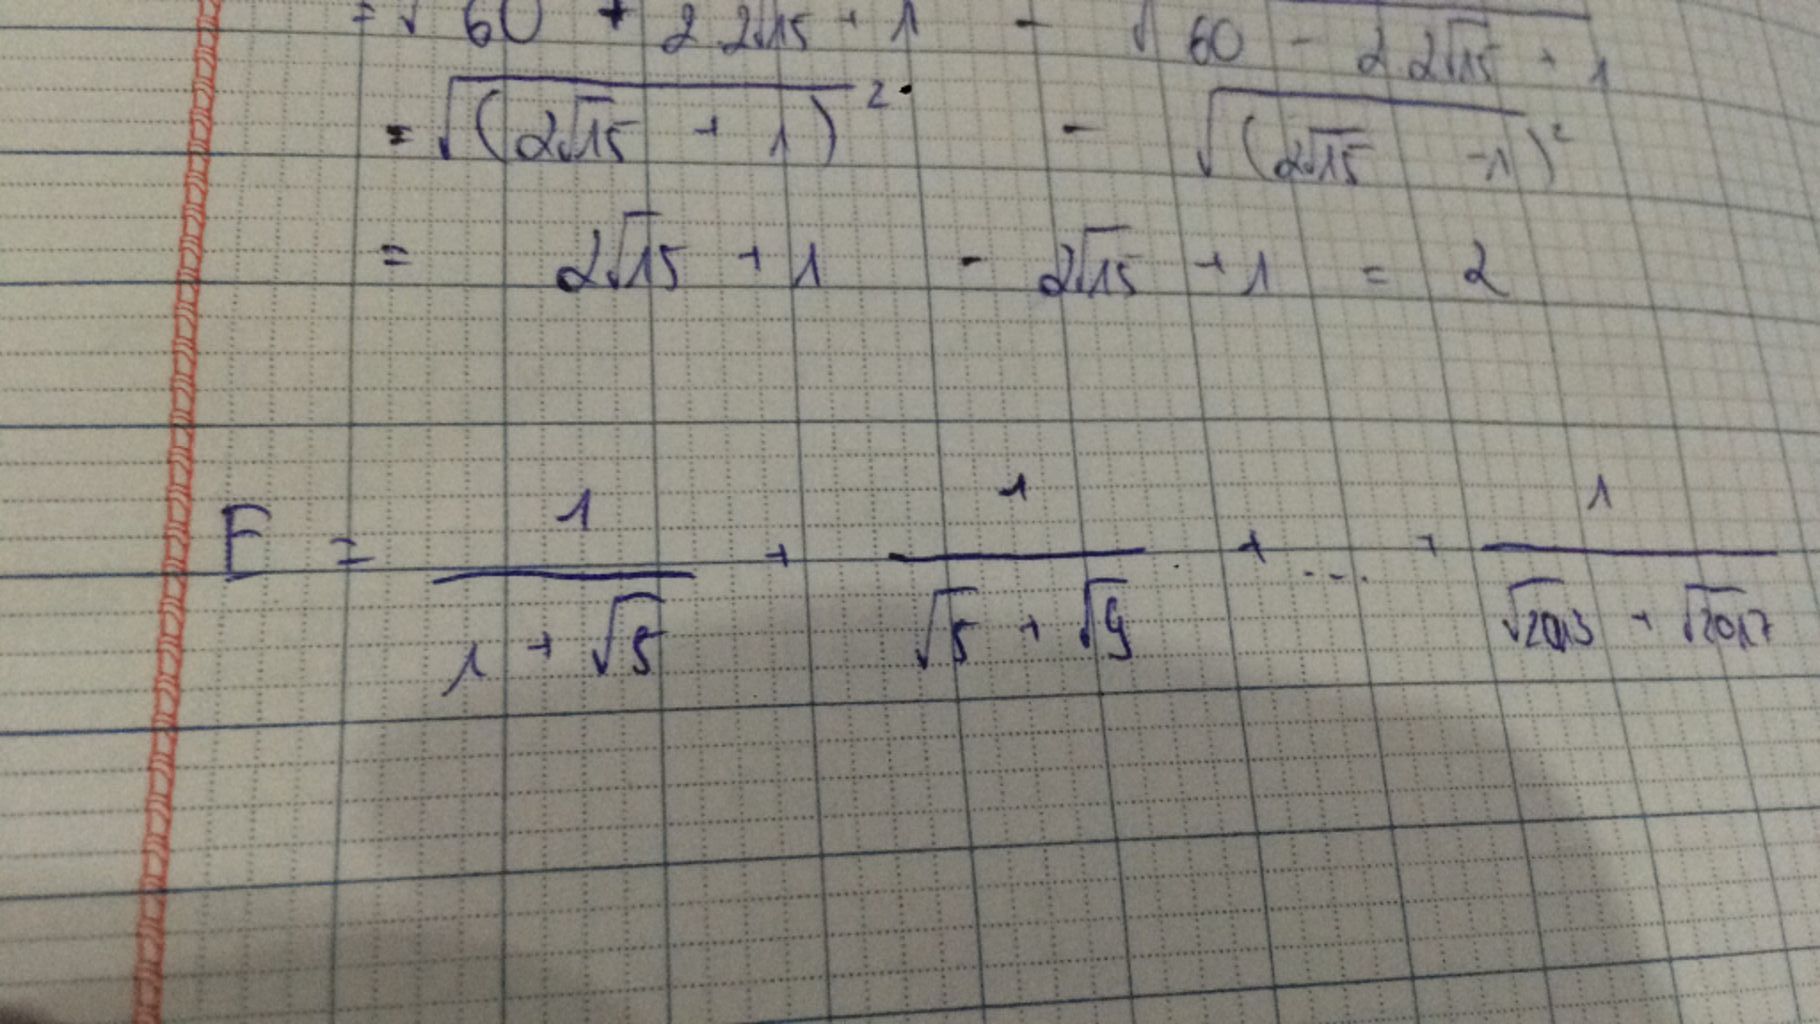 = √60 + 2 2√15 + 1 - √60 - 2 2√15 + 1
= √(2√15 + 1)² - √(2√15 - 1)²
= 2√15 + 1 - 2√15 + 1 = 2
E = 1/(1 + √5) + 1/(√5 + √9) + ... + 1/(√2013 + √2017)